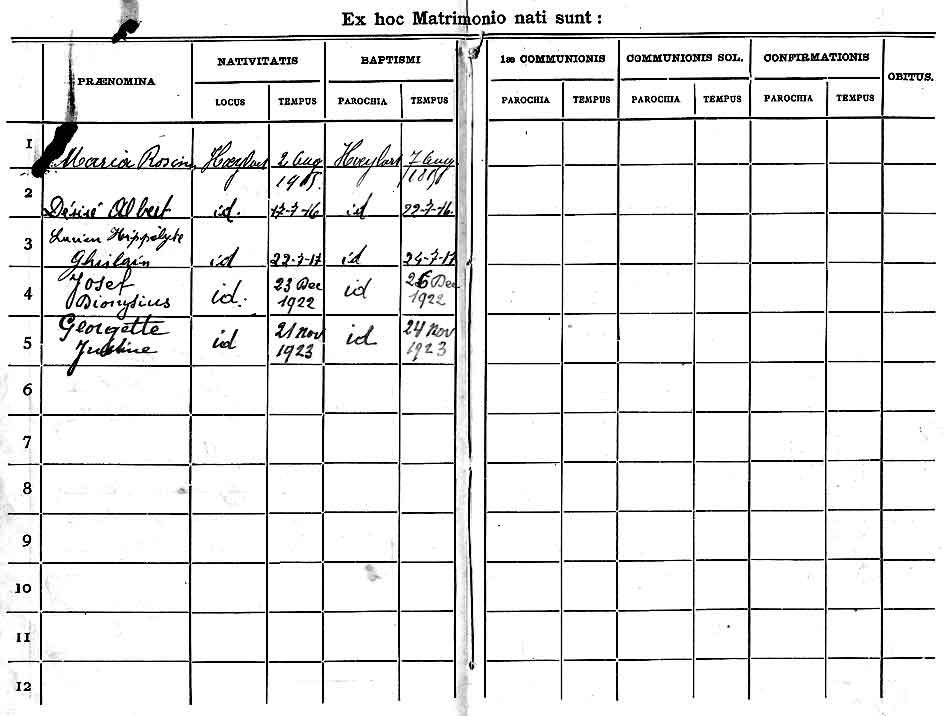 Ex hoc Matrimonio nati sunt :
PRÆNOMINA NATIVITATIS BAPTISMI 1æ COMMUNIONIS COMMUNIONIS SOL. CONFIRMATIONIS OBITUS.
LOCUS TEMPUS PAROCHIA TEMPUS PAROCHIA TEMPUS PAROCHIA TEMPUS PAROCHIA TEMPUS
1 Maria 2 Aug 7 Aug
2 Désiré Albert id. 17-7-16 id 22-7-16.
3 Lucien Hippolyte
Ghislain id 22-7-17 id 24-7-17
4 Josef
Dionysius id. 23 Dec
1922 id 26 Dec
1922
5 Georgette
Justine id 21 Nov
1923 id 24 Nov
1923
6
7
8
9
10
11
12